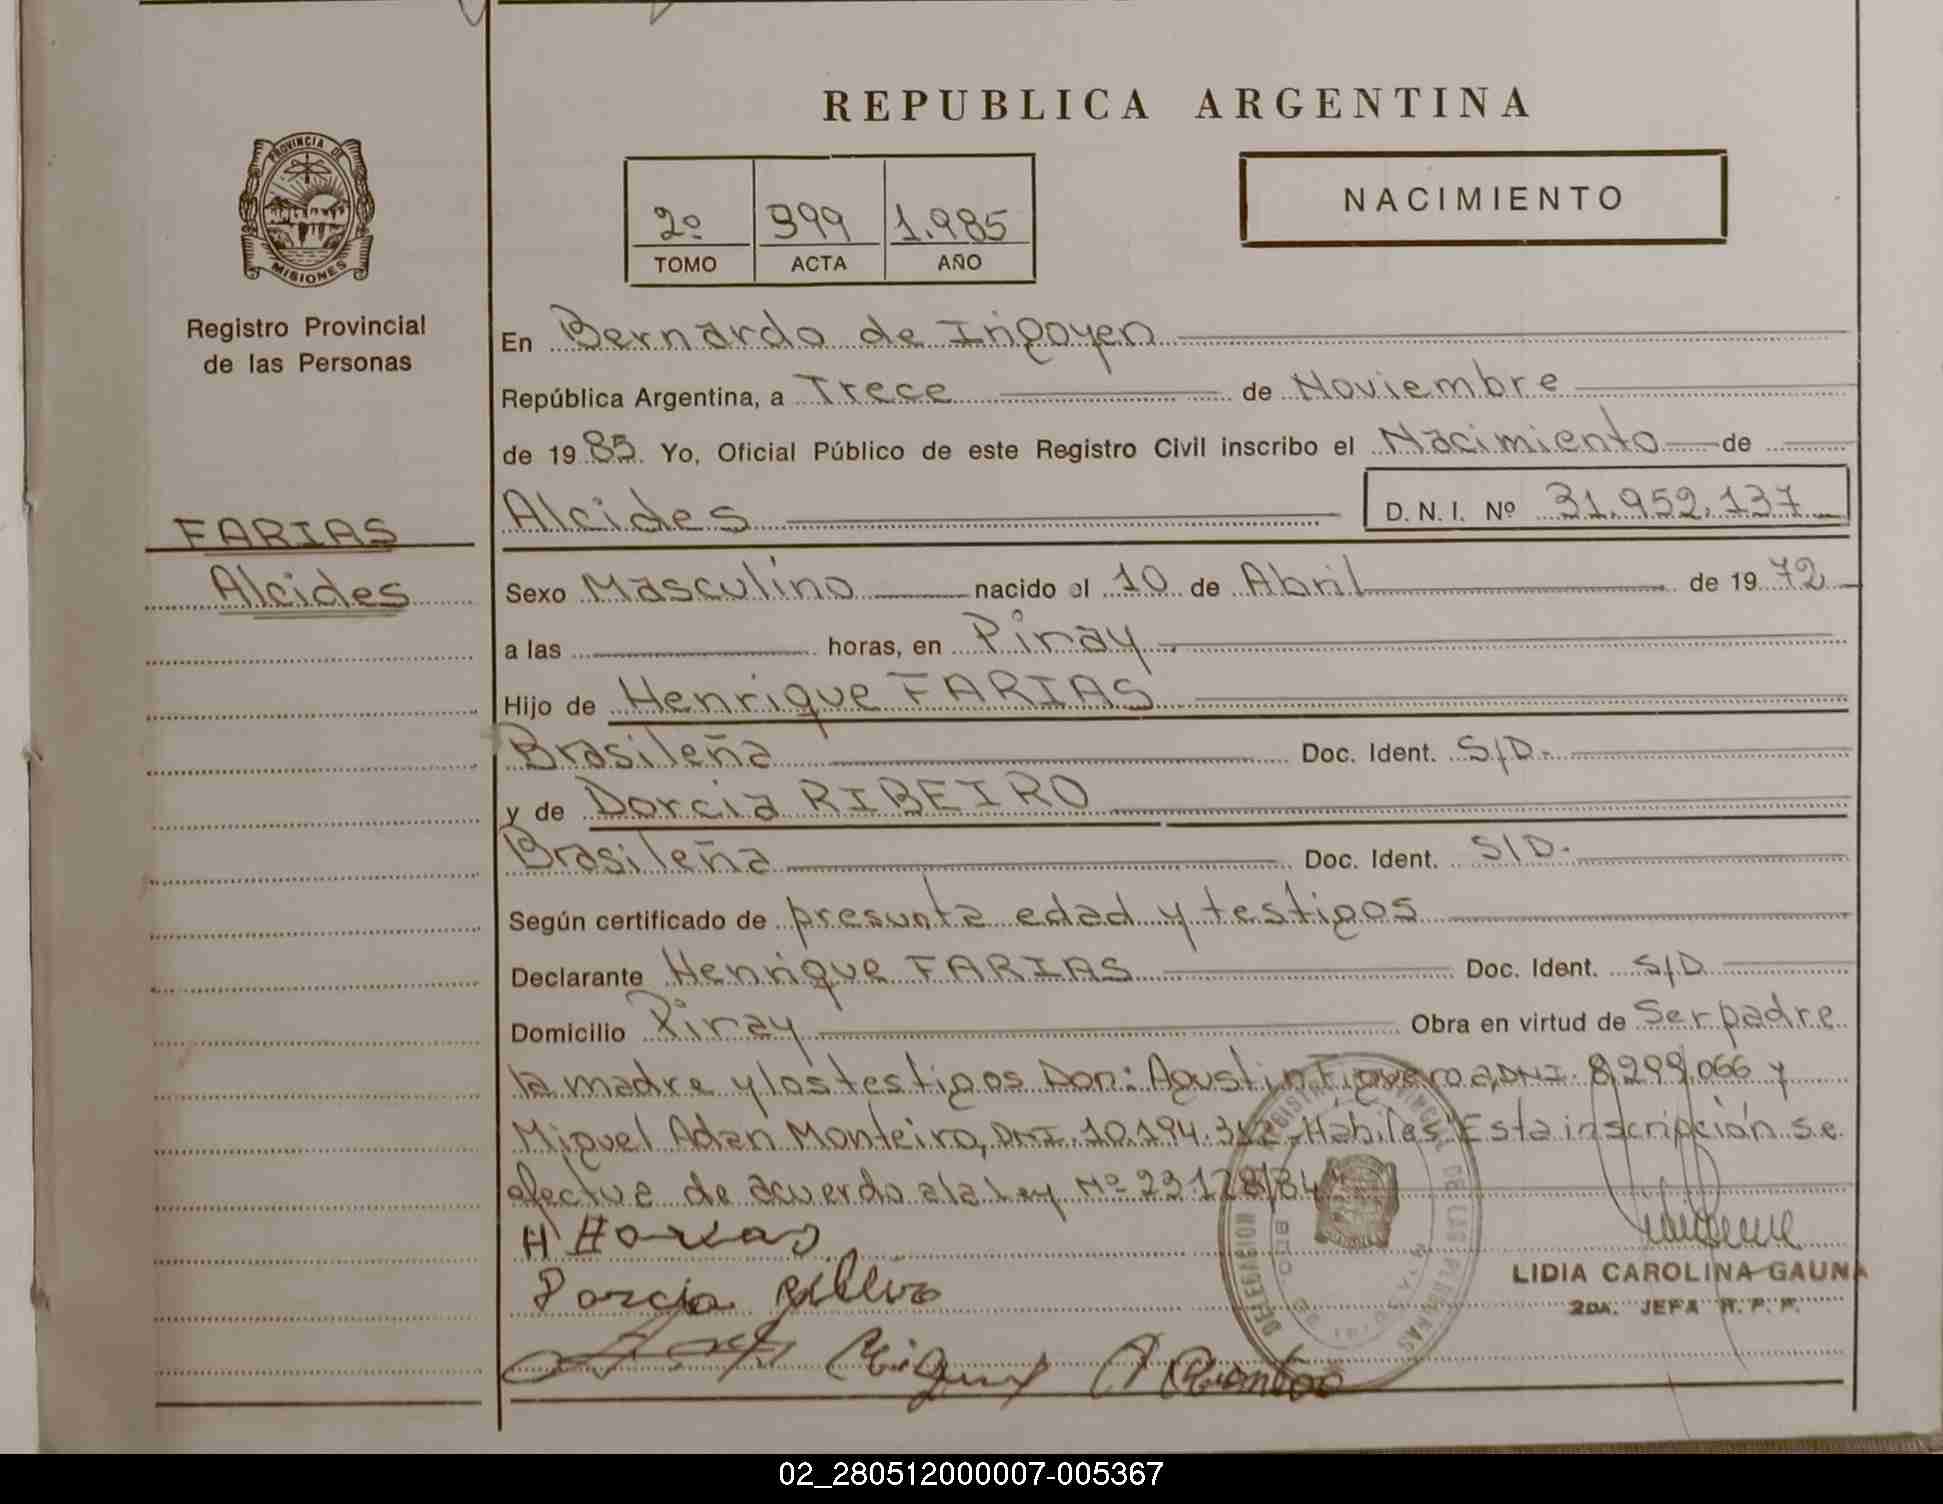 REPUBLICA ARGENTINA
PROVINCIA DE
MISIONES
Registro Provincial
de las Personas
2º 399 1.985
TOMO ACTA AÑO
NACIMIENTO
En Bernardo de Irigoyen
República Argentina, a Trece de Noviembre
de 1985. Yo, Oficial Público de este Registro Civil inscribo el Nacimiento de
Alcides D. N. I. Nº 31.952.137
FARIAS
Alcides
Sexo Masculino nacido el 10 de Abril de 1972
a las horas, en Piray
Hijo de Henrique FARIAS
Brasileña Doc. Ident. S/D.
y de Dorcia RIBEIRO
Brasileña Doc. Ident. S/D.
Según certificado de presunta edad y testigos
Declarante Henrique FARIAS Doc. Ident. S/D
Domicilio Piray Obra en virtud de Ser padre
la madre y los testigos Don: Agustin Figueroa, DNI. 8,299,066 y
Miguel Adan Monteiro, DNI. 10.194. Hábiles Esta inscripción se
efectua de acuerdo a la Ley Nº 23.128/84
LIDIA CAROLINA GAUNA
2DA. JEFA R. P. P.
02_280512000007-005367